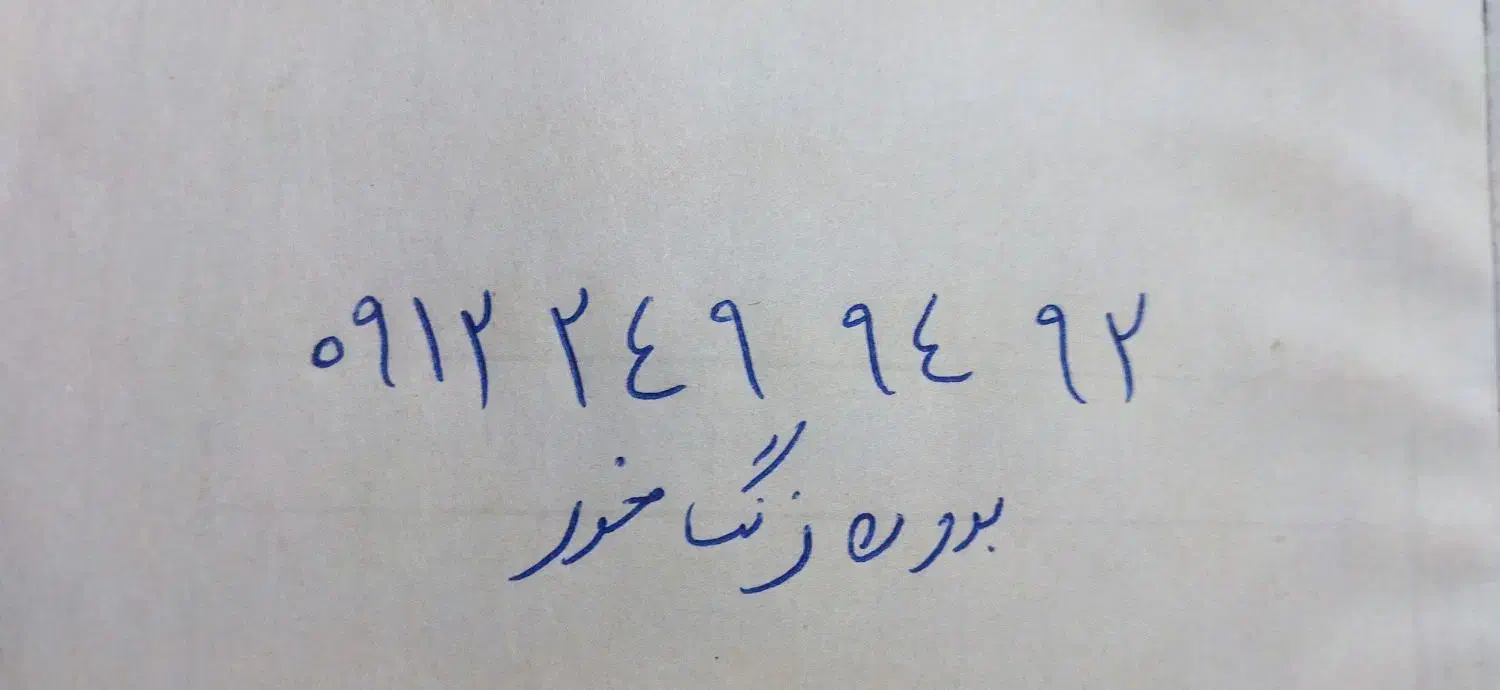 ۰۹۱۲ ۲۴۹ ۹۴ ۹۲
بدون زنگ خور